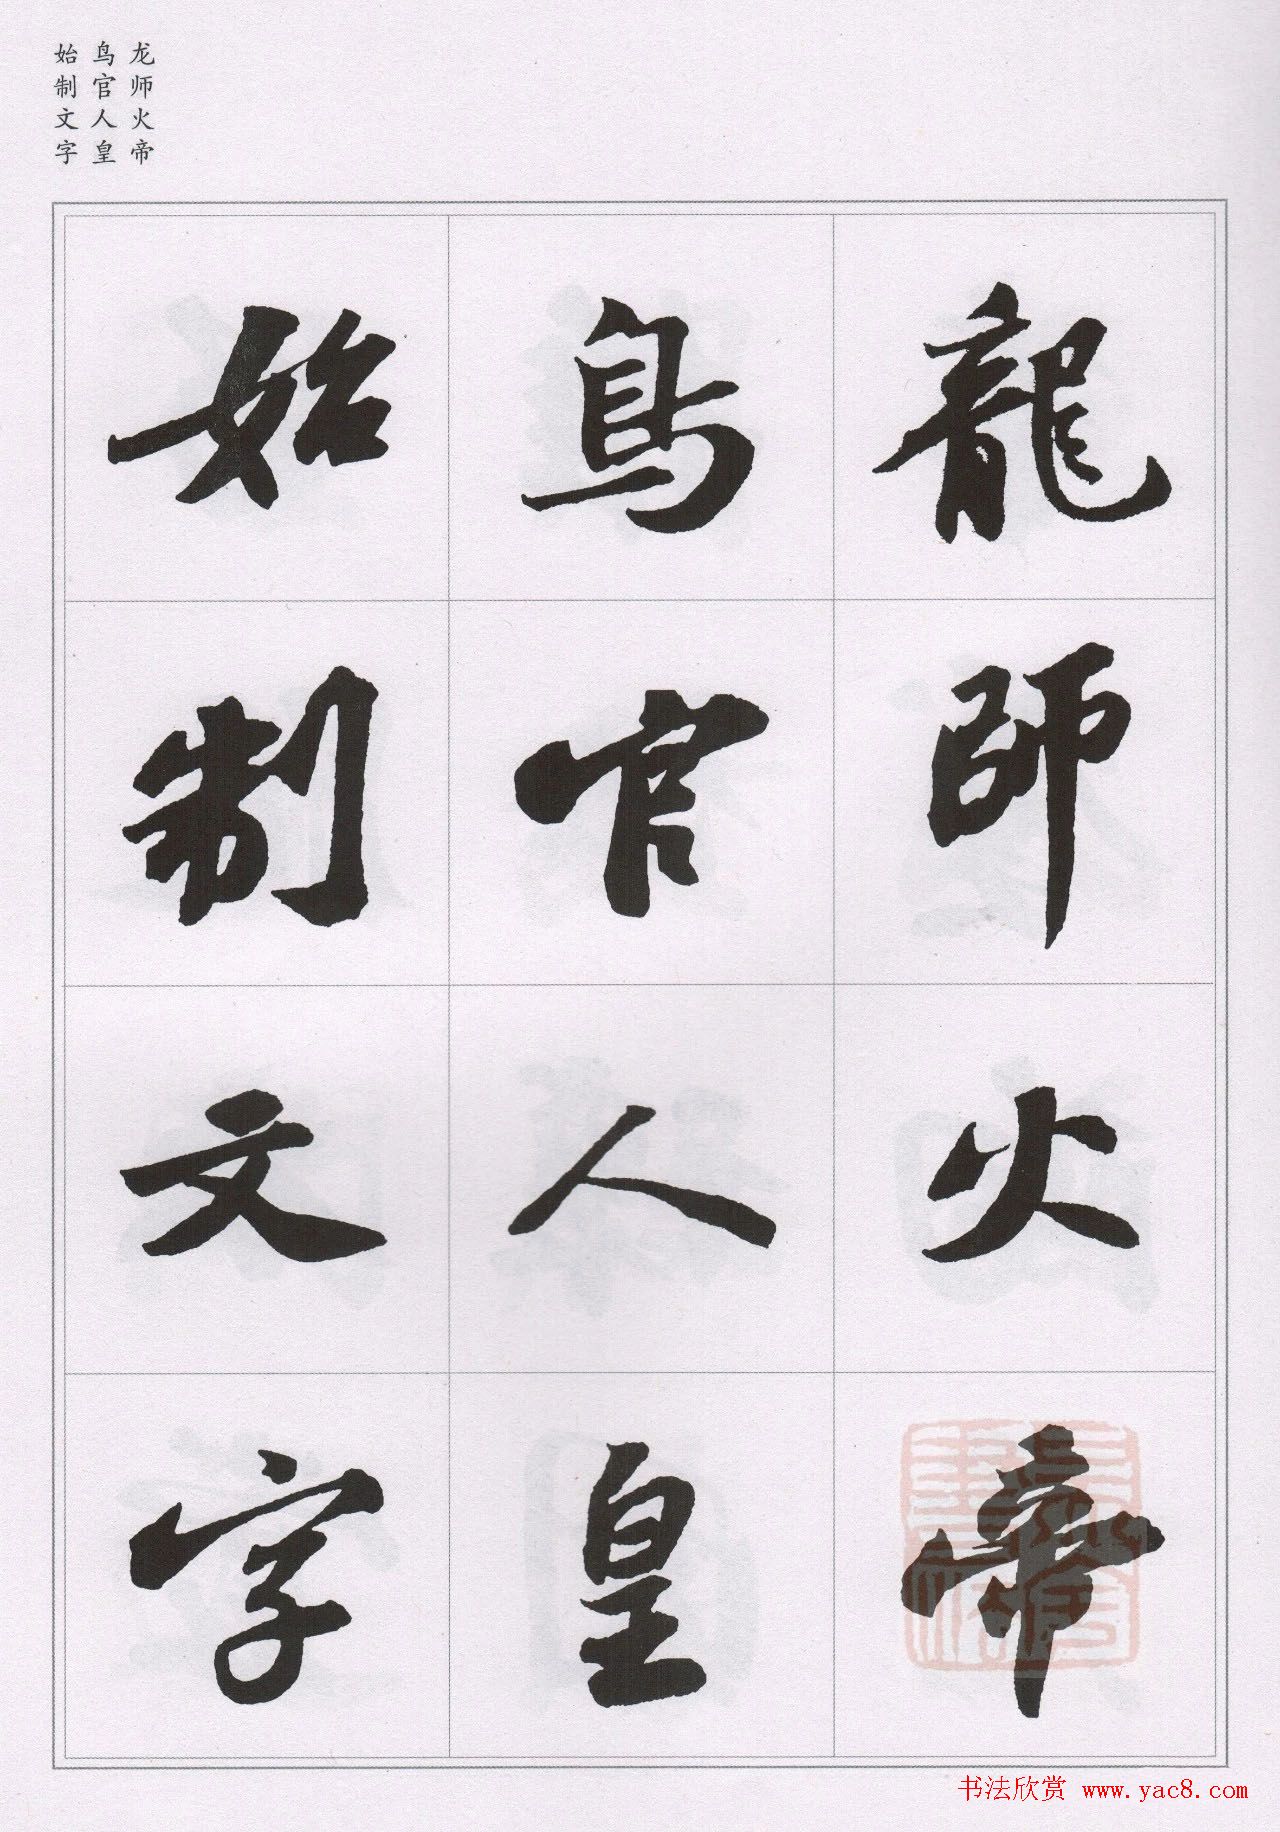 龙师火帝
鸟官人皇
始制文字
龍師火帝
鳥官人皇
始制文字
书法欣赏 www.yac8.com